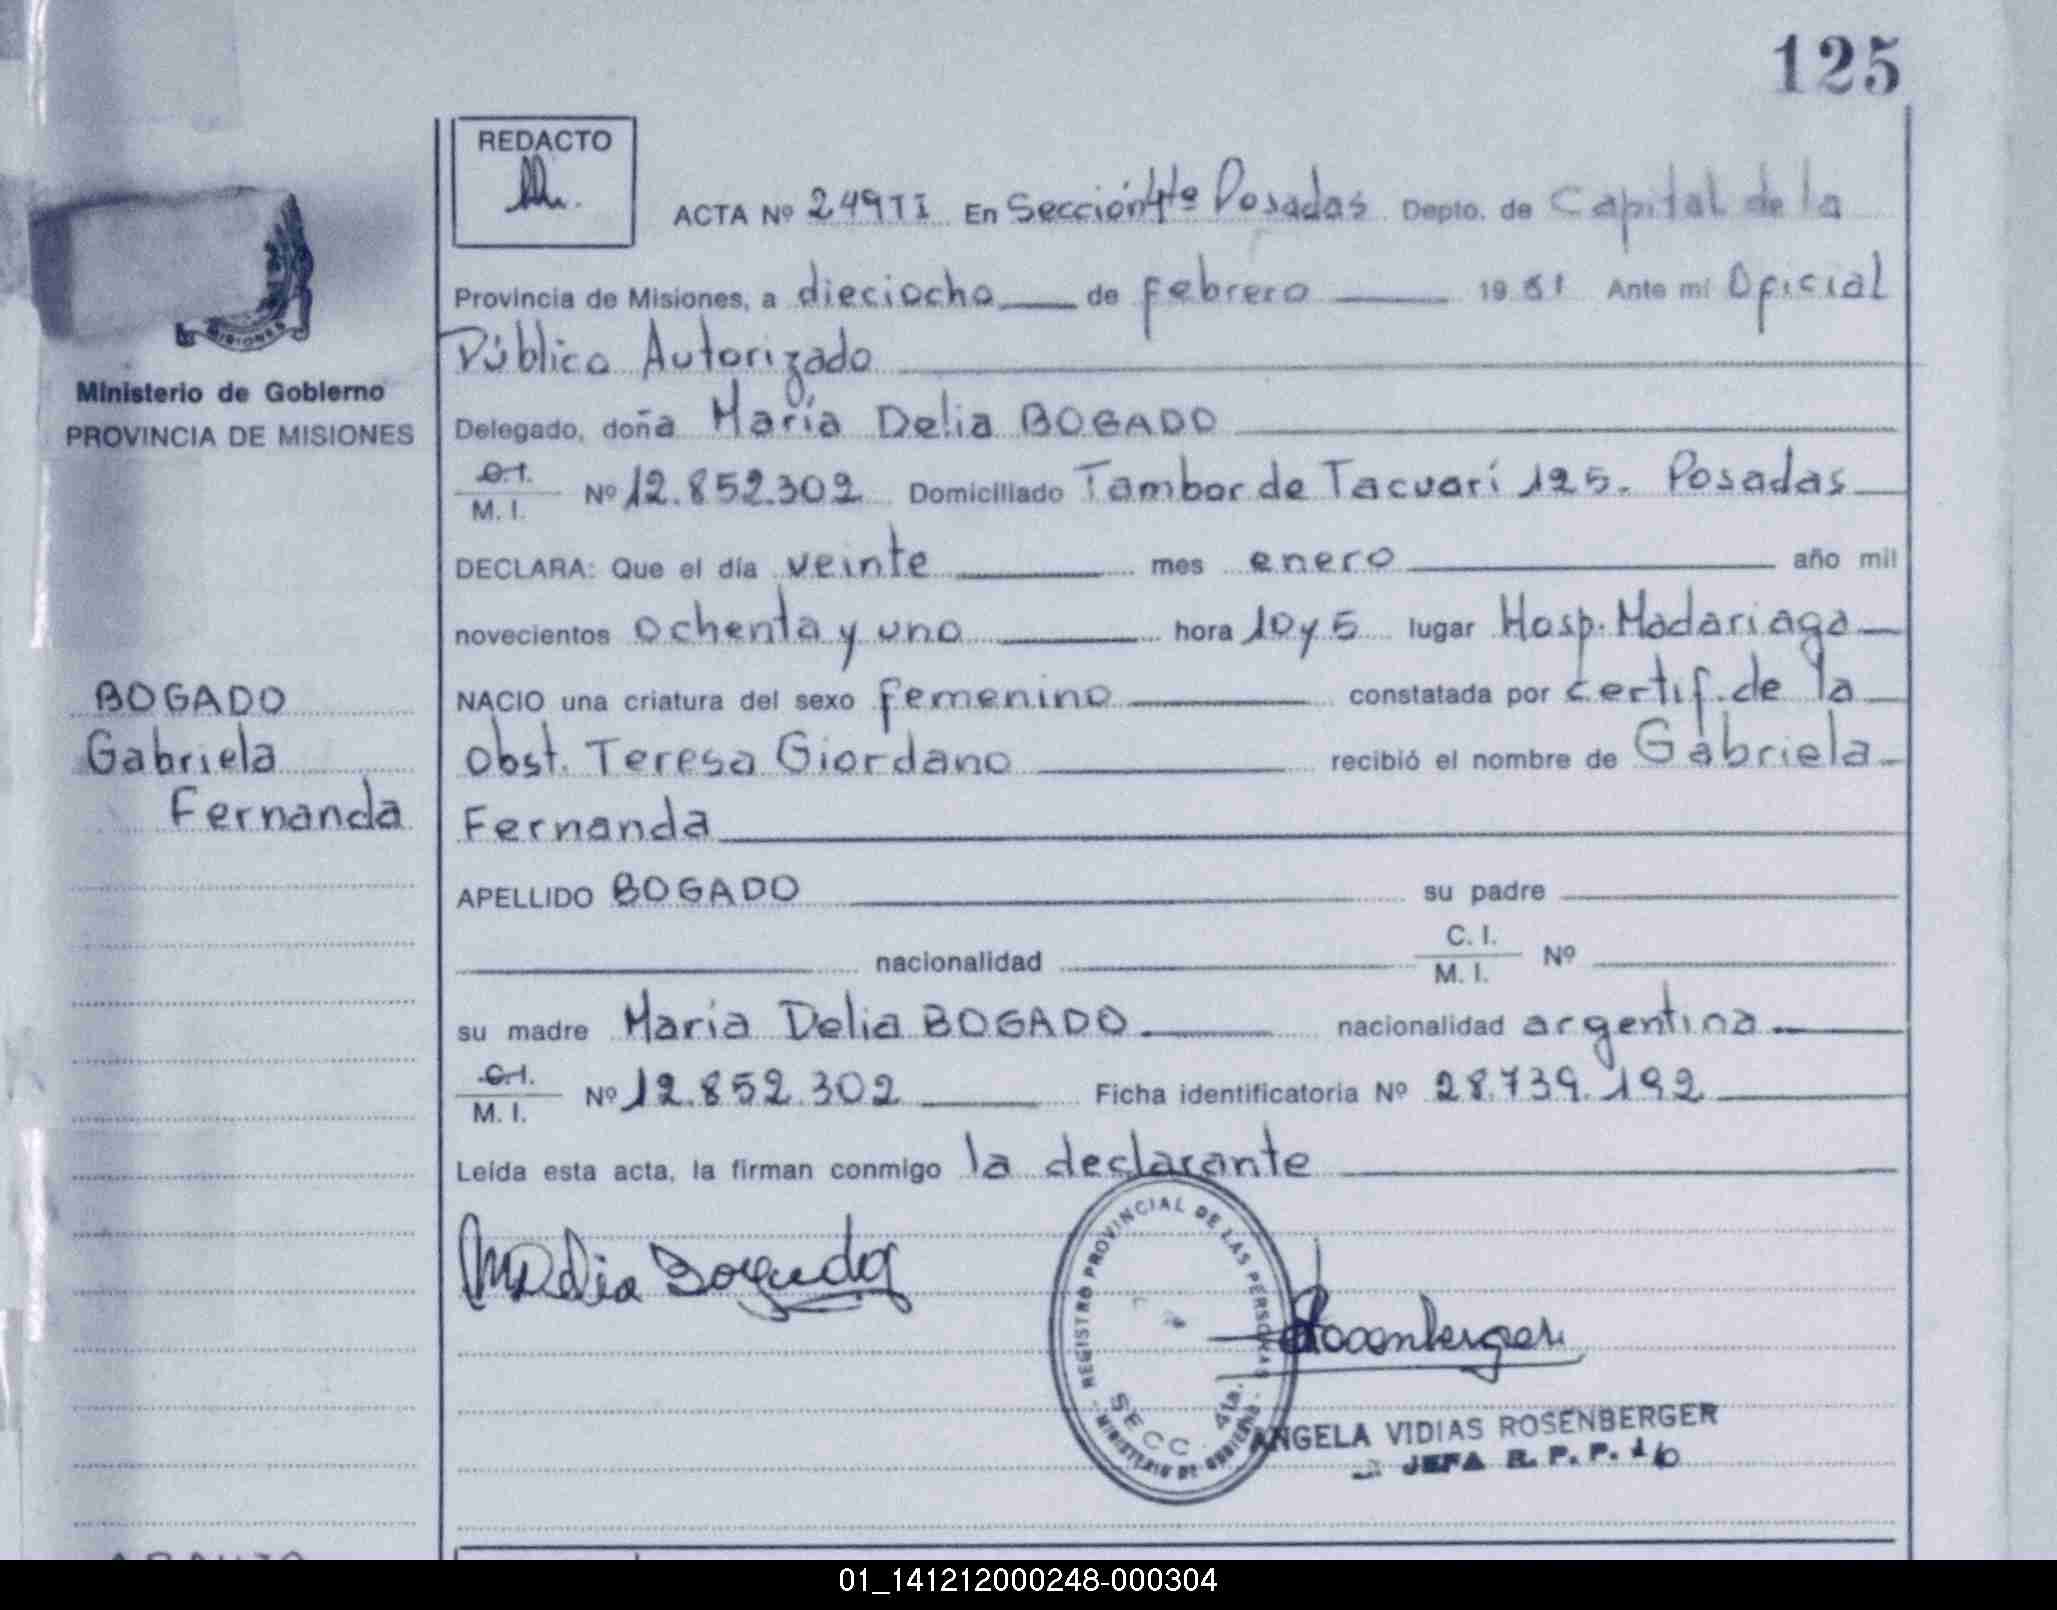 125
REDACTO
ACTA Nº 249TI En Sección 4ta Posadas Depto. de Capital de la
Provincia de Misiones, a dieciocho de febrero 1981 Ante mí Oficial
Público Autorizado
Delegado, doña María Delia BOGADO
C.I. M. I. Nº 12.852.302 Domiciliado Tambor de Tacuarí 125. Posadas
DECLARA: Que el día veinte mes enero año mil
novecientos ochenta y uno hora 10 y 5 lugar Hosp. Madariaga
NACIO una criatura del sexo femenino constatada por certif. de la
obst. Teresa Giordano recibió el nombre de Gabriela
Fernanda
APELLIDO BOGADO su padre
nacionalidad C. I. M. I. Nº
su madre María Delia BOGADO nacionalidad argentina
C.I. M. I. Nº 12.852.302 Ficha identificatoria Nº 28.739.192
Leída esta acta, la firman conmigo la declarante
MDelia Bogado
Rosenberger
REGISTRO PROVINCIAL DE LAS PERSONAS
SECC. 4ta.
MINISTERIO DE GOBIERNO
ANGELA VIDIAS ROSENBERGER
JEFA R. P. P.
MISIONES
Ministerio de Gobierno
PROVINCIA DE MISIONES
BOGADO
Gabriela
Fernanda
01_141212000248-000304